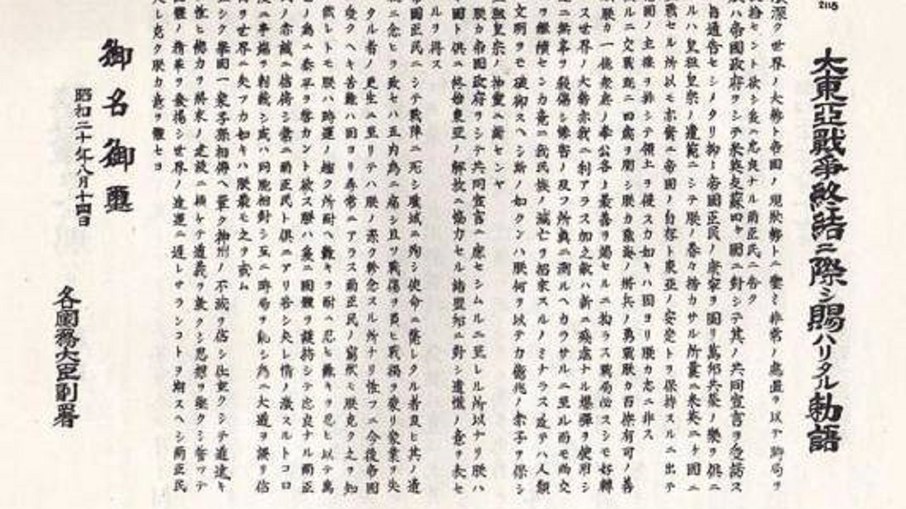 大東亞戰爭終結ニ際シ賜ハリタル勅語
深ク世界ノ大勢ト帝國ノ現狀トニ鑑ミ非常ノ處置ヲ以テ時局ヲ
拾セント欲シ茲ニ忠良ナル爾臣民ニ告ク
ハ帝國政府ヲシテ米英支蘇四ケ國ニ對シテ其ノ共同宣言ヲ受諾ス
旨通告セシメタリ抑ー帝國臣民ノ康寧ヲ圖リ萬邦共榮ノ樂ヲ俱ニ
ルハ皇祖皇宗ノ遺範ニシテ朕ノ眷々措カサル所曩ニ米英二ケ國ニ
戰セル所以モ亦實ニ帝國ノ自存ト東亞ノ安定トヲ保持スルニ出テ
國ノ主權ヲ排シテ領土ヲ侵スカ如キハ固ヨリ朕カ志ニ非ス
ルニ交戰既ニ四歳ヲ閲シ朕カ陸海ノ將兵ノ勇戰朕カ百僚有司ノ善
朕カ一億衆庶ノ奉公各々最善ヲ竭セルニ拘ラス戰局必スシモ好轉
ス世界ノ大勢亦我ニ利アラス加之敵ハ新ニ殘虐ナル爆彈ヲ使用シ
ニ無辜ヲ殺傷シ慘害ノ及フ所眞ニ測ルヘカラサルニ至ル而モ尚交
ヲ繼續センカ竟ニ我民族ノ滅亡ヲ招來スルノミナラス延テハ人類
文明ヲモ破却スヘシ斯ノ如クンハ朕何ヲ以テカ億兆ノ赤子ヲ保シ
皇祖皇宗ノ神靈ニ謝センヤ
朕カ帝國政府ヲシテ共同宣言ニ應セシムルニ至レル所以ナリ朕ハ
國ト俱ニ終始東亞ノ解放ニ協力セル諸盟邦ニ對シ遺憾ノ意ヲ表セ
ルヲ得ス
國臣民ニシテ戰陣ニ死シ職域ニ殉シ使命ニ斃レタル者及ヒ其ノ遺
ニ念ヒヲ致セハ五内為ニ痛シ且ツ戰傷ヲ負ヒ戰禍ヲ蒙リ家業ヲ失
タル者ノ更生ニ至リテハ朕ノ深ク軫念スル所ナリ惟フニ今後帝國
受クヘキ苦難ハ固ヨリ尋常ニアラス爾臣民ノ衷情モ朕克ク之ヲ知
然レトモ朕ハ時運ノ趨ク所耐ヘ難キヲ耐ヘ忍ヒ難キヲ忍ヒ以テ萬
ノ為ニ泰平ヲ啓カント欲ス朕ハ茲ニ國體ヲ護持シテ忠良ナル爾臣
ノ赤誠ニ信倚シ常ニ爾臣民ト俱ニアリ若シ夫レ情ノ激スルトコロ
ニ事端ヲ滋クシ或ハ同胞相爭シ互ニ時局ヲ亂シ為ニ大道ヲ誤リ信
ヲ世界ニ失フカ如キハ朕最モ之ヲ戒ム
シク擧國一家子孫相傳ヘ確ク神州ノ不滅ヲ信シ任重クシテ道遠キ
ヲ惟ヒ總力ヲ將來ノ建設ニ傾ケテ道義ヲ篤クシ思想ヲ堅クシ誓ツテ
體ノ精華ヲ發揚シ世界ノ進運ニ遲レサランコトヲ期スヘシ爾臣民
レ克ク朕カ意ヲ體セヨ
御名御璽
昭和二十年八月十四日
各國務大臣副署